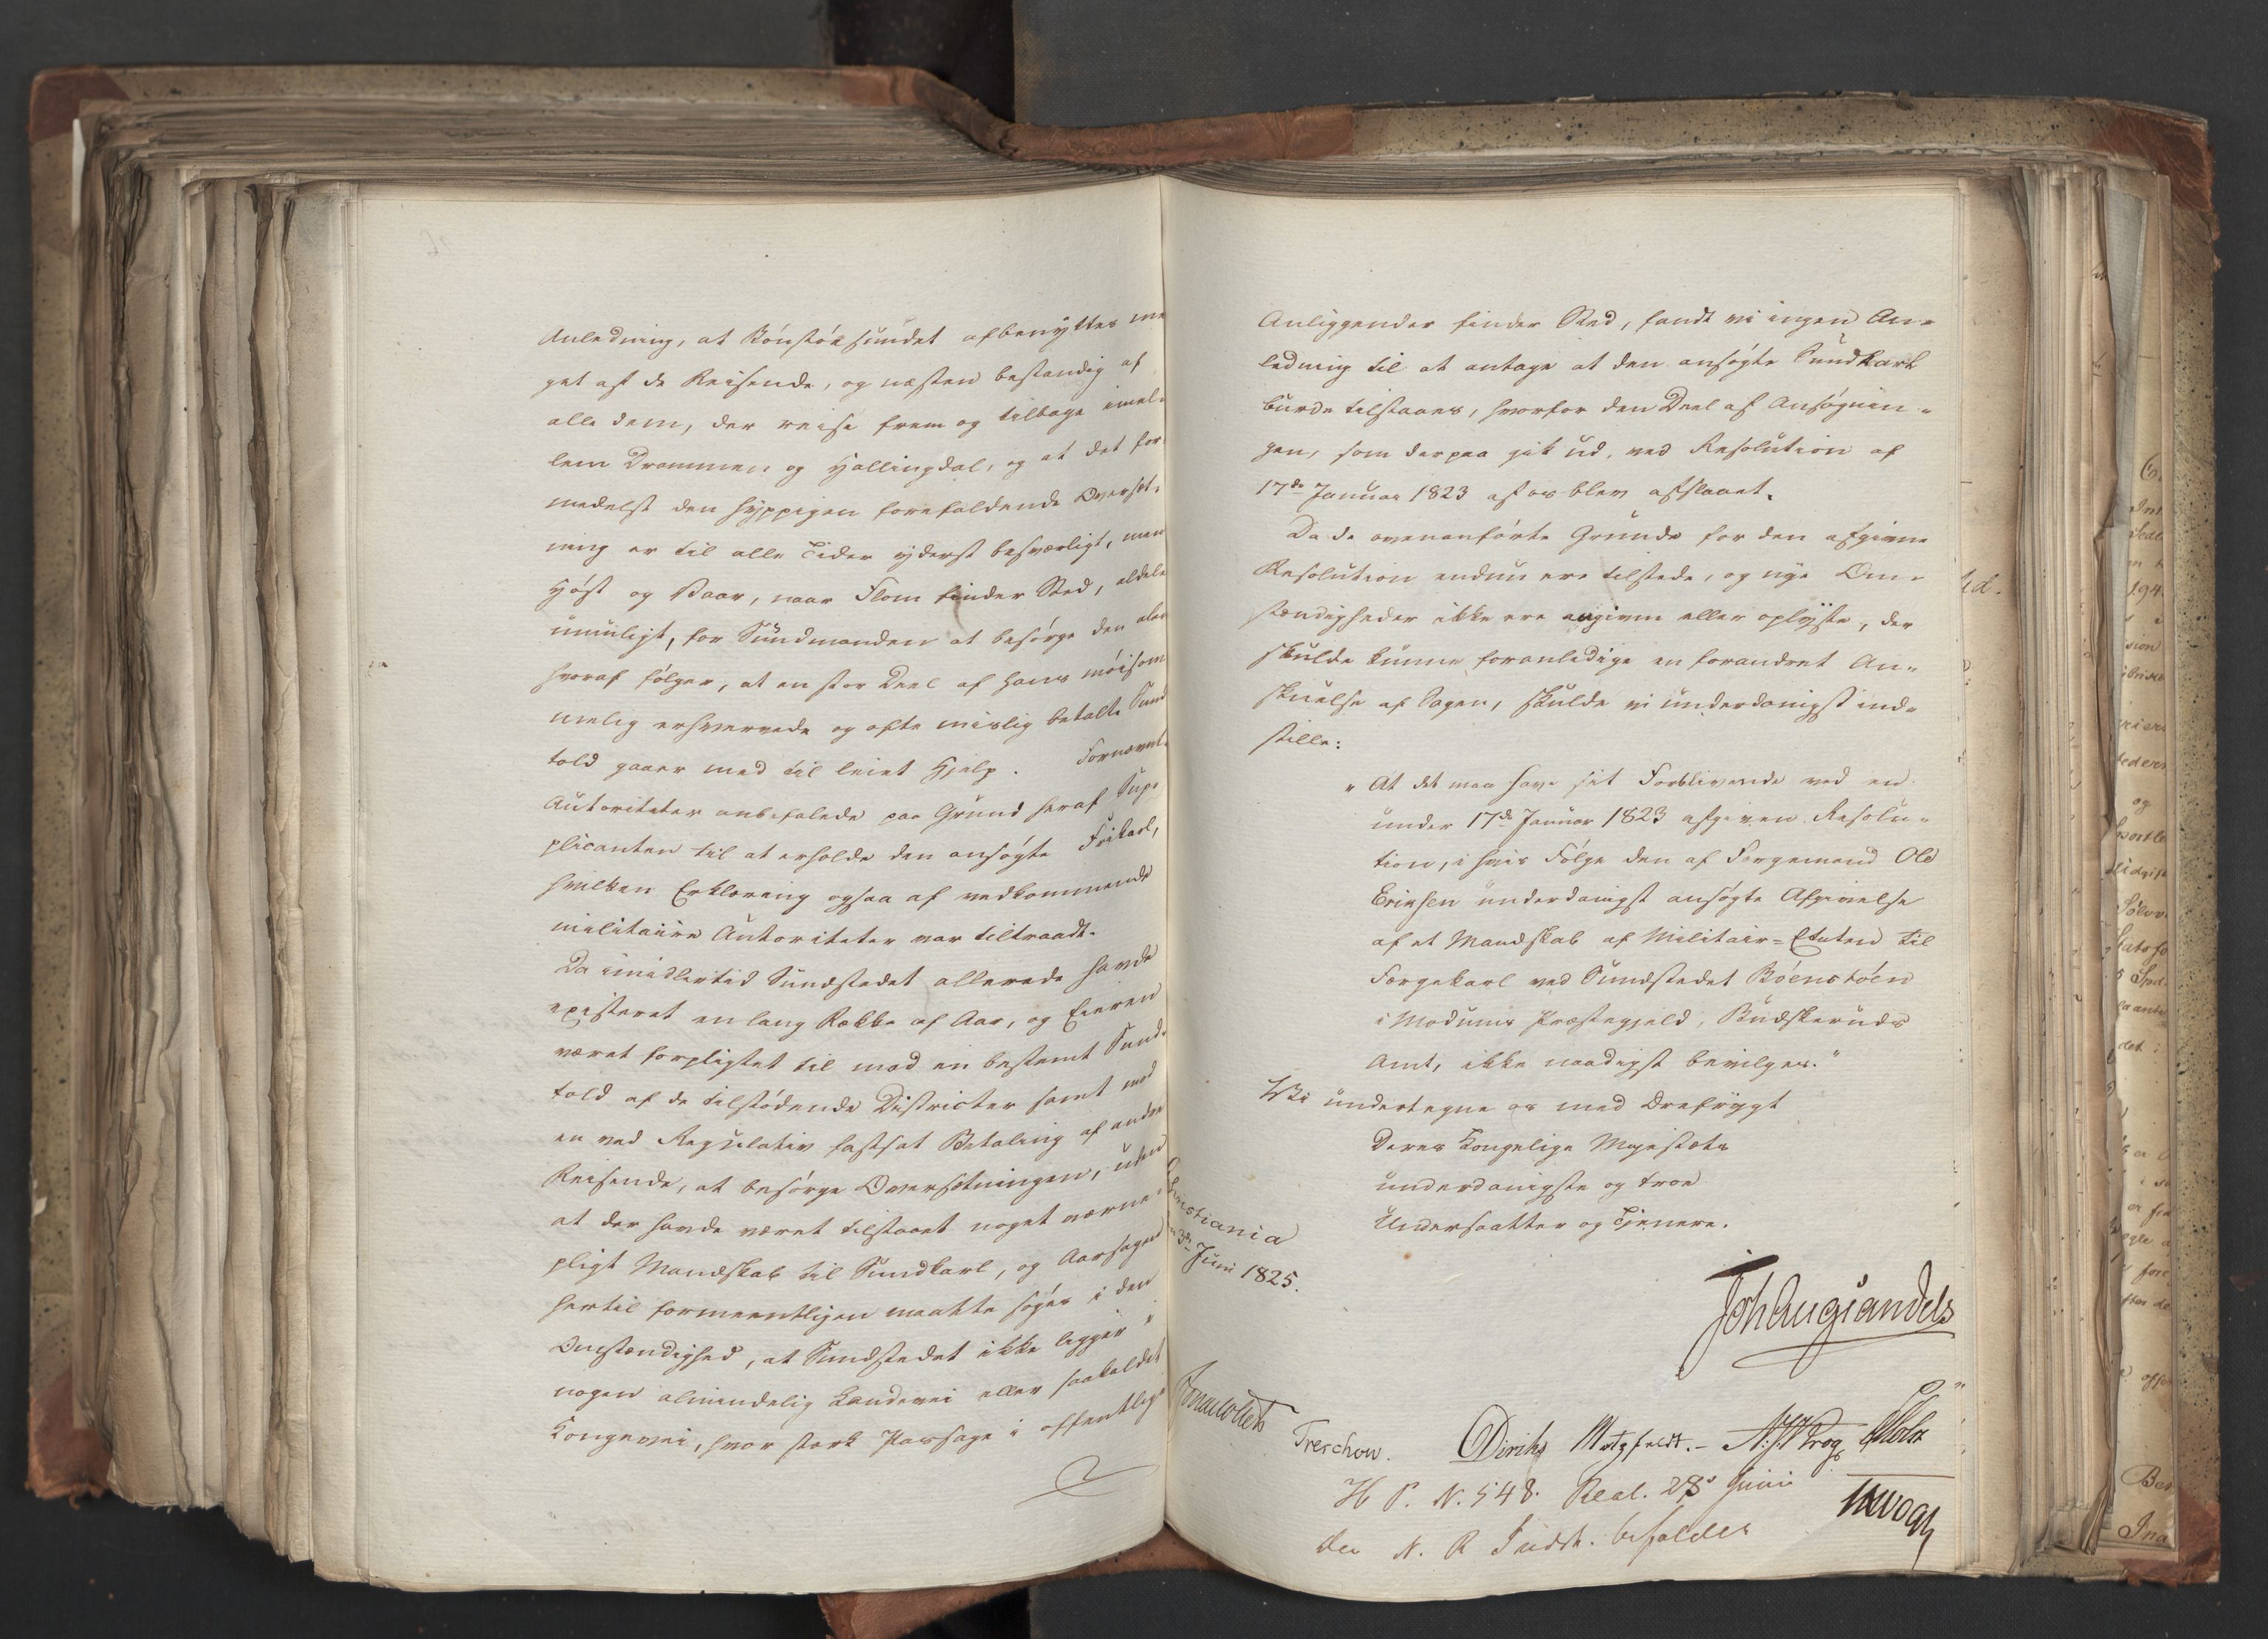 Anledning, at Rönstöe sundet afbenyttes me
get af de Reisende, og næsten bestandig af
alle dem, der reise frem og tilbage imel-
lem Drammen og Hallingdal, og at det for-
medelst den hyppigen forefaldende Oversæt-
ning er til alle Tider yderst besværligt, men
Höst og Vaar, naar Flom finder Sted, aldeles
umuligt, for Sundmanden at besörge den alene
hvoraf fölger, at en stor Deel af hans möisom
melig erhvervede og ofte mislig betalte Sund
told gaaer med til leiet Hjelp. Fornævnte
Autoriteter anbefalede paa Grund heraf Sup-
plicanten til at erholde den ansögte Frikarl,
hvilken Erklæring ogsaa af vedkommende
militaire Autoriteter var tiltraadt.
Da imidlertid Sundstedet allerede havde
existeret en lang Række af Aar, og Eieren
været forpligtet til mod en bestemt Sund-
told af de tilstödende Districter samt mod
en ved Regulativ fastsat Betaling af andre
Reisende, at besörge Oversætningen, uden
at der havde været tilstaaet noget værne-
pligt Mandskab til Sundkarl, og Aarsagen
hertil formeentligen maatte söges i den
Omstændighed, at Sundstedet ikke ligger i
nogen almindelig Landevei eller saakaldet
Kongevei, hvor stærk Passage i offentlige
Anliggender finder Sted, fandt vi ingen An-
ledning til at antage at den ansögte Sundkarl
burde tilstaaes, hvorfor den Deel af Ansögnin-
gen, som derpaa gik ud, ved Resolution af
17de Januar 1823 af os blev afslaaet.
Da de ovenanförte Grunde for den afgivne
Resolution endnu ere tilstede, og nye Om-
stændigheder ikke ere angivne eller oplyste, der
skulde kunne foranledige en forandret An-
skuelse af Sagen, skulde vi underdanigst ind-
stille:
"At det maa have sit Forblivende ved en
under 17de Januar 1823 afgiven Resolu-
tion, i hvis Fölge den af Færgemand Ole
Eriksen underdanigst ansögte Afgivelse
af et Mandskab af Militair-Etaten til
Færgekarl ved Sundstedet Böenstöen
i Modums Præstegjeld, Budskeruds
Amt, ikke naadigst bevilges."
Vi undertegne os med Ærefrygt
Deres Kongelige Majestæts
underdanigste og troe
Undersaatter og Tjenere.
Christiania
3de Juni 1825.
Joh Aug Sandels
Jonas Collett
Treschow. Diriks Motzfeldt.- N.J. Krog Holst
H P. N. 548. Real. 28s Juni
den N. R Indst. bifaldes
JHVogt